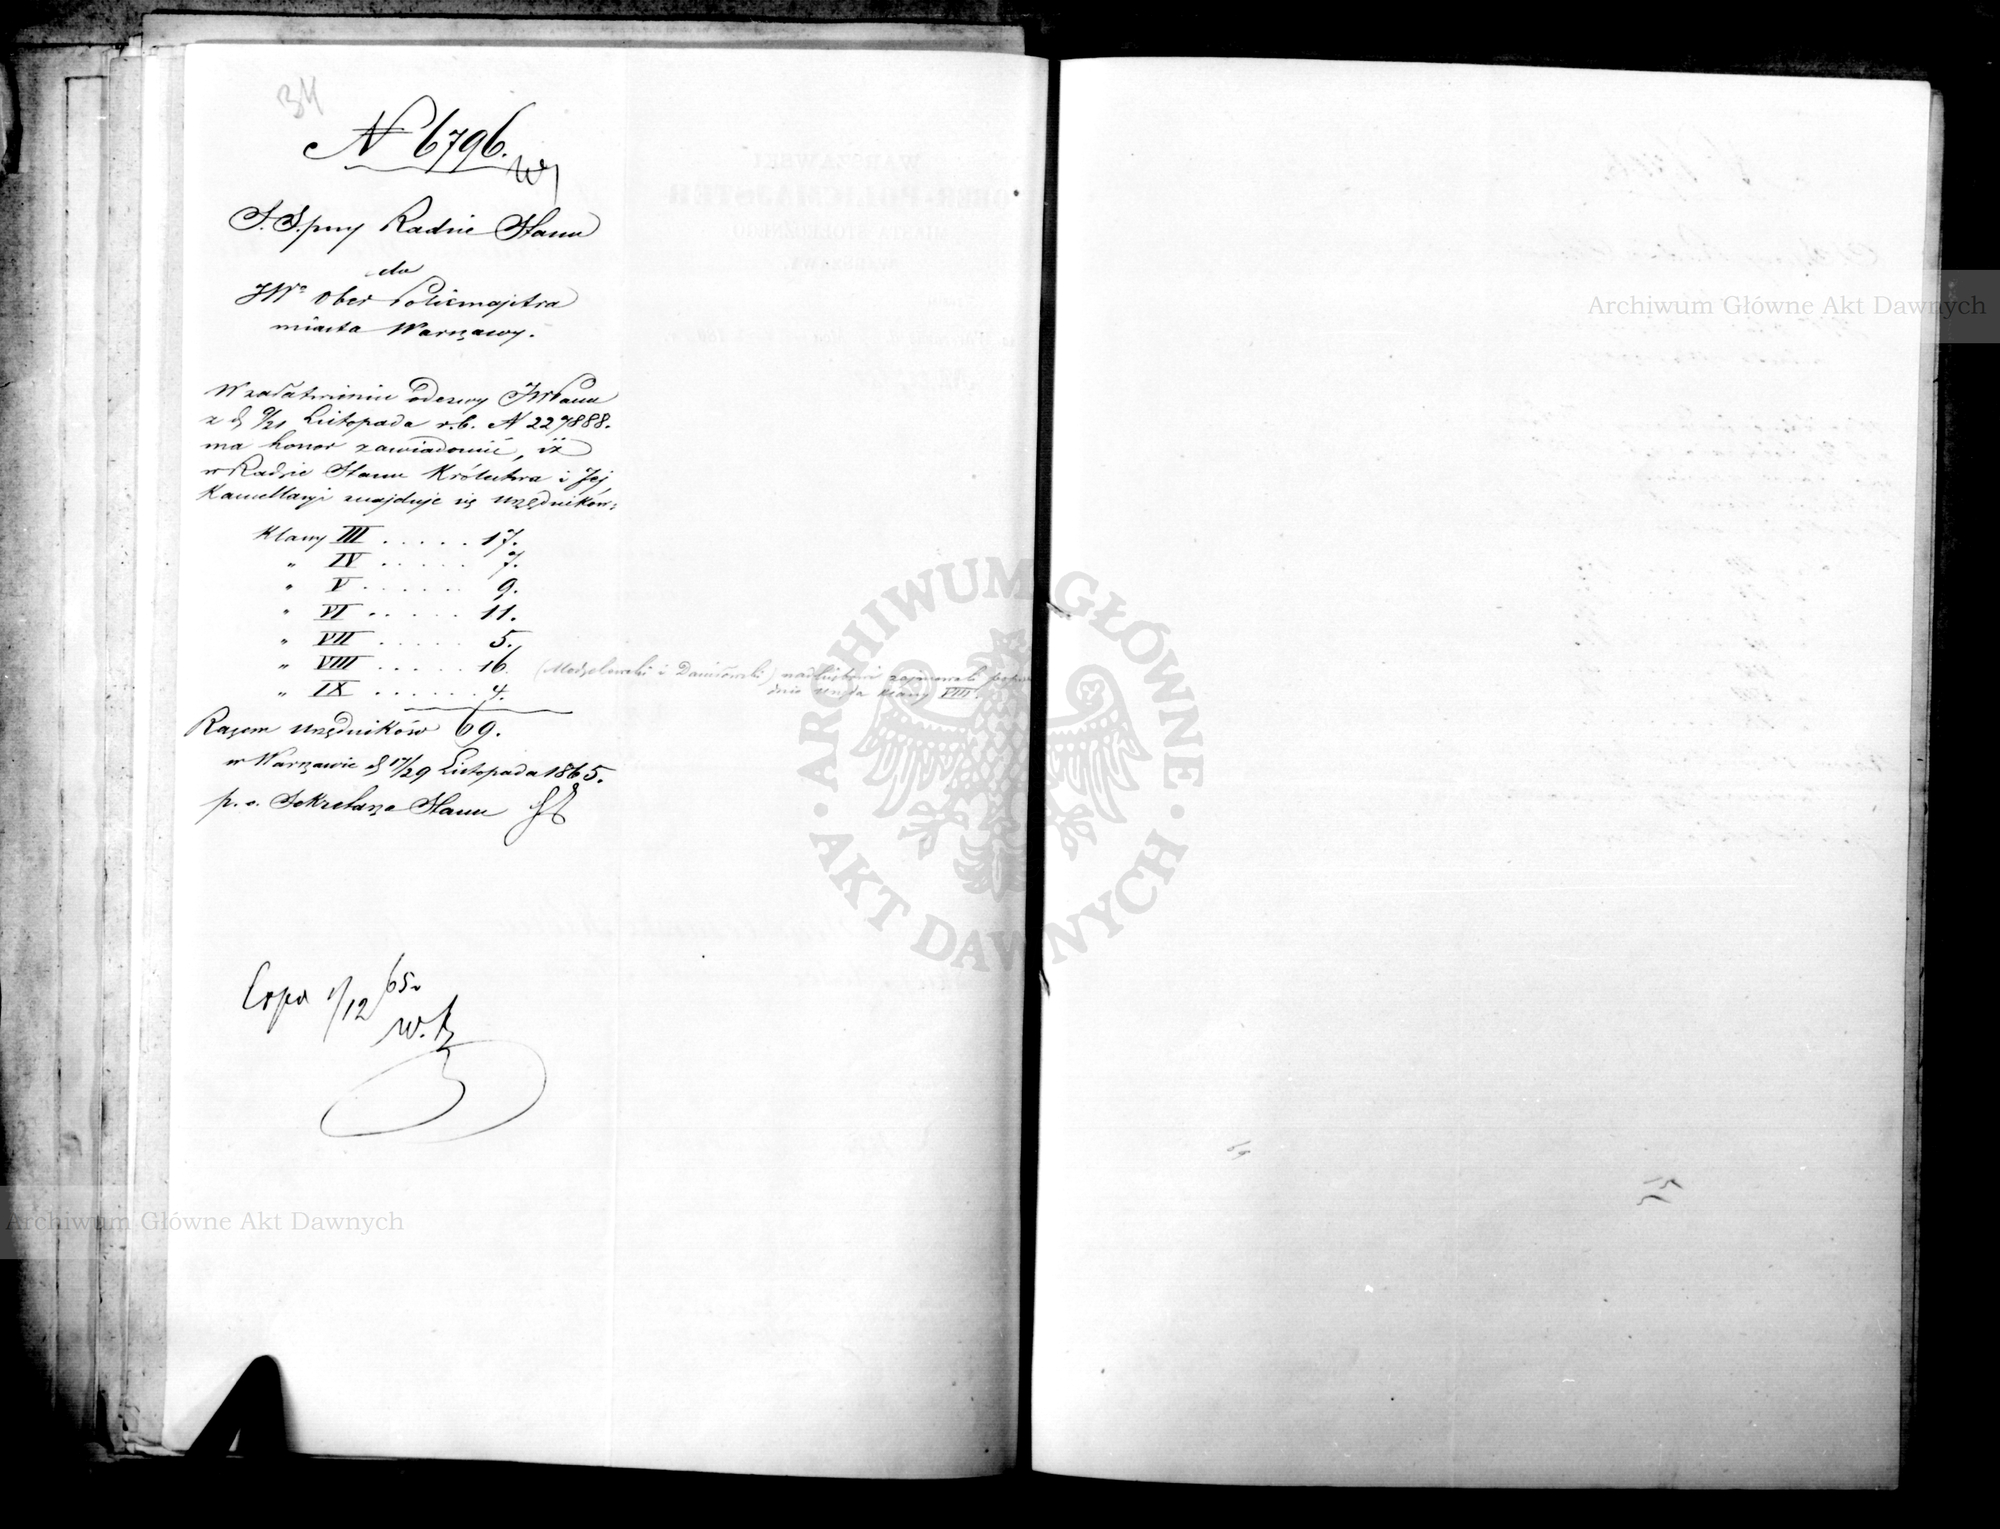 34
N 6796.
S. S. przy Radzie Stanu
do
JWo Ober Policmajstra
miasta Warszawy.
W załatwieniu odezwy JWPana
z d. 9/21 Listopada r.b. N 227888.
ma honor zawiadomić, iż
w Radzie Stanu Królestwa i Jej
Kancellaryi znajduje się urzędników:
Klassy III . . . . . 17.
„ IV . . . . . . 7.
„ V . . . . . . 9.
„ VI . . . . . . 11.
„ VII . . . . . 5.
„ VIII . . . . . 16. (Modzelewski i Daniłowski) nadliczbowi zajmowali poprze
dnio urzęda klassy VIII.
„ IX . . . . . . 4.
Razem urzędników 69.
w Warszawie d. 17/29 Listopada 1865.
p. o. Sekretarza Stanu
1/12 65
Archiwum Główne Akt Dawnych
Archiwum Główne Akt Dawnych
ARCHIWUM GŁÓWNE · AKT DAWNYCH ·
69